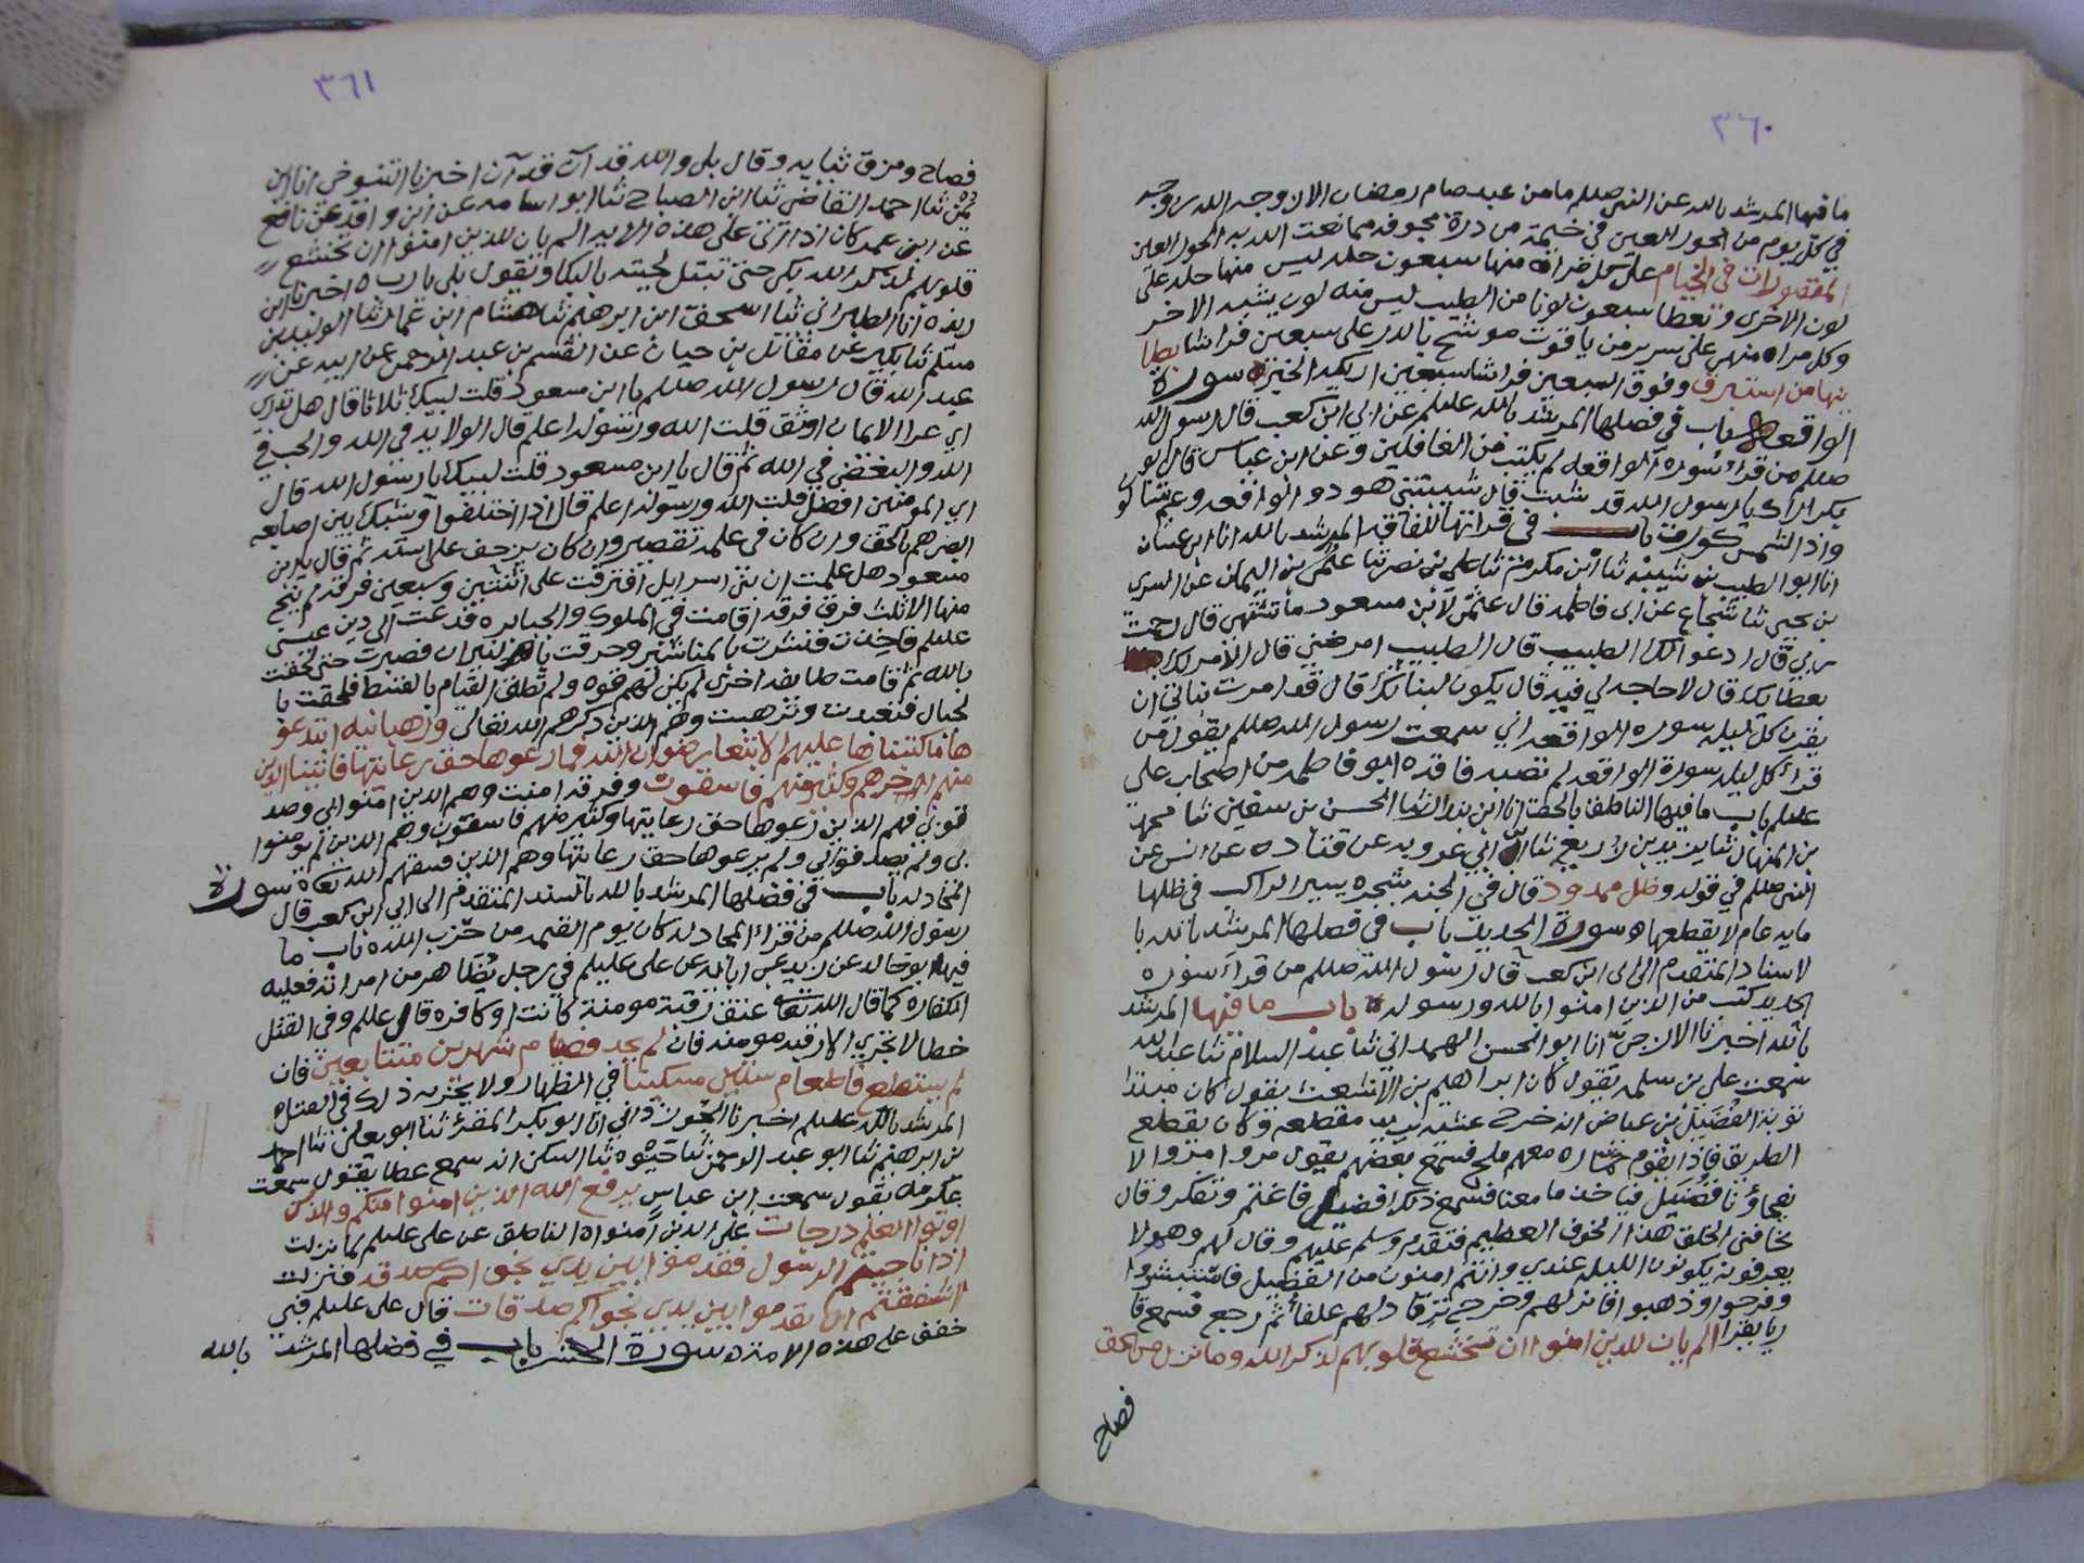 ٣٦٠
ما فيها المرشد بالله عن النبي صللم ما من عبد صام رمضان الا زوجه الله زوجه
في كل يوم من الحور العين في خيمة من درة مجوفه مما نعت الله به الحور العين
المقصورات في الخيام على كل امراة منها سبعون حله ليس منها حله على
لون الاخرى وتعطا سبعون لونا من الطيب ليس منه لون يشبه الاخر
وكل مراه منهن على سرير من ياقوت موشح بالدر على سبعين فراشا بطا
ينها من استبرق وفوق السبعين فراشا سبعين اريكه الخبر ه سورة
الواقعه باب في فضلها المرشد بالله عليلم عن ابي ابن كعب قال رسول الله
صللم من قراء سورة الواقعه لم يكتب من الغافلين وعن ابن عباس قال ابو
بكر اراك يا رسول الله قد شبت قال شيبتني هود والواقعه وعم يتسالون
واذا الشمس كورت باب في قراتها للفاقه المرشد بالله انا ابن غسان
انا ابو الطيب بن شيبه ثنا ابن مكرم ثنا علي بن نصر ثنا عثمن بن اليمان عن السري
بن يحيى ثنا شجاع عن ابي فاطمه قال عثمن لابن مسعود ما تشتهي قال رحمت
ربي قال ادعو الك الطبيب قال الطبيب امرضني قال الا نامر لك
بعطايك قال لا حاجه لي فيه قال يكون لبناتك قال قد امرت بناتي ان
يقرين كل ليله سورة الواقعه اني سمعت رسول الله صللم يقول من
قراء كل ليله سورة الواقعه لم تصبه فاقه ه ابو فاطمه من اصحاب علي
عليلم باب ما فيها الناطق بالحق انا ابن بندار ثنا الحسن بن سفين ثنا محمد
بن المنهال ثنا يزيد بن زريع ثنا ابن ابي عروبه عن قتاده عن انس عن
النبي صللم في قوله وظل ممدود قال في الجنه شجره يسير الراكب في ظلها
مايه عام لا يقطعها ه سورة الحديد باب في فضلها المرشد بالله با
لاسناد المتقدم الى ابى ابن كعب قال رسول الله صللم من قراء سوره
الحديد كتب من الذين امنوا بالله ورسوله ه باب ما فيها المرشد
بالله اخبرنا الازجي انا ابو الحسن الهمداني ثنا عبد السلام ثنا عبد الله
سمعت علي بن سلمه يقول كان ابراهيم بن الاشعث يقول كان مبتدا
توبة الفضيل بن عياض انه خرج عشيه يريد مقطعه وكان يقطع
الطريق فاذا بقوم حماره معهم ملح فسمع بعضهم يقول مروا مروا لا
يفجاؤنا فضيل فياخذ ما معنا فسمع ذلك فضيل فاغتم وتفكر وقال
يخافني الخلق هذا الخوف العظيم فتقدم وسلم عليهم وقال لهم وهم لا
يعرفونه يكونون الليله عندي وانتم امنون من الفضيل فاستبشروا
وفرحوا وذهبوا فانزلهم وخرج يرتاد لهم علفا ثم رجع فسمع قا
ريا يقرا الم يان للذين امنوا ان تخشع قلوبهم لذكر الله وما نزل من الحق
فصاح
٣٦١
فصاح ومزق ثيابه وقال بلى والله قد آن قد آن اخبرنا التنوخي انا ابن
ثنا احمد القاضي ثنا ابن الصباح ثنا ابو اسامه عن ابن واقد عن نافع
عن ابن عمر كان اذا اتى على هذه الايه الم يان للذين امنوا ان تخشع
قلوبهم لذكر الله بكى حتى تبتل لحيته بالبكا ويقول بلى يا رب ه اخبرنا ابن
ريذه انا الطبراني ثنا اسحق ابن ابرهيم ثنا هشام ابن عمار ثنا الوليد بن
مسلم ثنا بكير عن مقاتل بن حيان عن القسم بن عبد الرحمن عن ابيه عن
عبد الله قال رسول الله صللم يا ابن مسعود قلت لبيك ثلاثا قال هل تدري
اي عرا الايمان اوثق قلت الله ورسوله اعلم قال الولايه في الله والحب في
الله والبغض في الله ثم قال يا ابن مسعود قلت لبيك يا رسول الله قال
اي المومنين افضل قلت الله ورسوله اعلم قال اذا اختلفوا وشبك بين اصابعه
ابصرهم بالحق وان كان في علمه تقصير وان كان يزحف على استه ثم قال يا ابن
مسعود هل علمت ان بني اسرايل افترقت على اثنتين وسبعين فرقه لم ينج
منها الا ثلث فرق فرقه اقامت في الملوك والجبابره فدعت الى دين عيسى
عليلم فاخذت فنشرت بالمناشير وحرقت بالنيران فصبرت حتى لحقت
بالله ثم قامت طايفه اخرى لم يكن لهم قوه ولم تطق القيام بالقسط فلحقت با
لجبال فتعبدت وترهبت وهم الذين ذكرهم الله تعالى ورهبانيه ابتدعو
ها ما كتبناها عليهم الا ابتغا رضوان الله فما رعوها حق رعايتها فاتينا الذين
منهم اجرهم وكثير منهم فاسقون وفرقه امنت وهم الذين امنوا بي وصد
قوني فهم الذين رعوها حق رعايتها وكثير منهم فاسقون وهم الذين لم يومنوا
بي ولم يصدقوني ولم يرعوها حق رعايتها وهم الذين فسقهم الله تعا ه سورة
المجادله باب في فضلها المرشد بالله بالسند المتقدم الى ابي ابن كعب قال
رسول الله صللم من قراء المجادله كان يوم القيمه من حزب الله ه باب ما
فيها ابو خالد عن زيد عن ابايه عن علي عليلم في رجل يظاهر من امراته فعليه
الكفاره كما قال الله تعا عتق رقبة مومنة كانت او كافره قال عللم وفي القتل
خطا لا تجزي الا رقبه مومنه فان لم يجد فصيام شهرين متتابعين فان
لم يستطع فاطعام ستين مسكينا في الظهار ولا يجزيه ذلك في القتل ه
المرشد بالله عليلم اخبرنا الجوزداني انا ابو بكر المقرئ ثنا ابو يعلى ثنا احمد
بن ابرهيم ثنا ابو عبد الرحمن ثنا حيوه ثنا السكن انه سمع عطا يقول سمعت
عكرمه يقول سمعت ابن عباس يرفع الله الذين امنوا منكم والذين
اوتوا العلم درجات على الذين امنوا ه الناطق عن علي عليلم لما نزلت
اذا ناجيتم الرسول فقدموا بين يدي نجواكم صدقه فنزلت
ااشفقتم ان تقدموا بين يدي نجواكم صدقات قال علي عليلم فبي
خفف على هذه الامة ه سورة الحشر باب في فضلها المرشد بالله